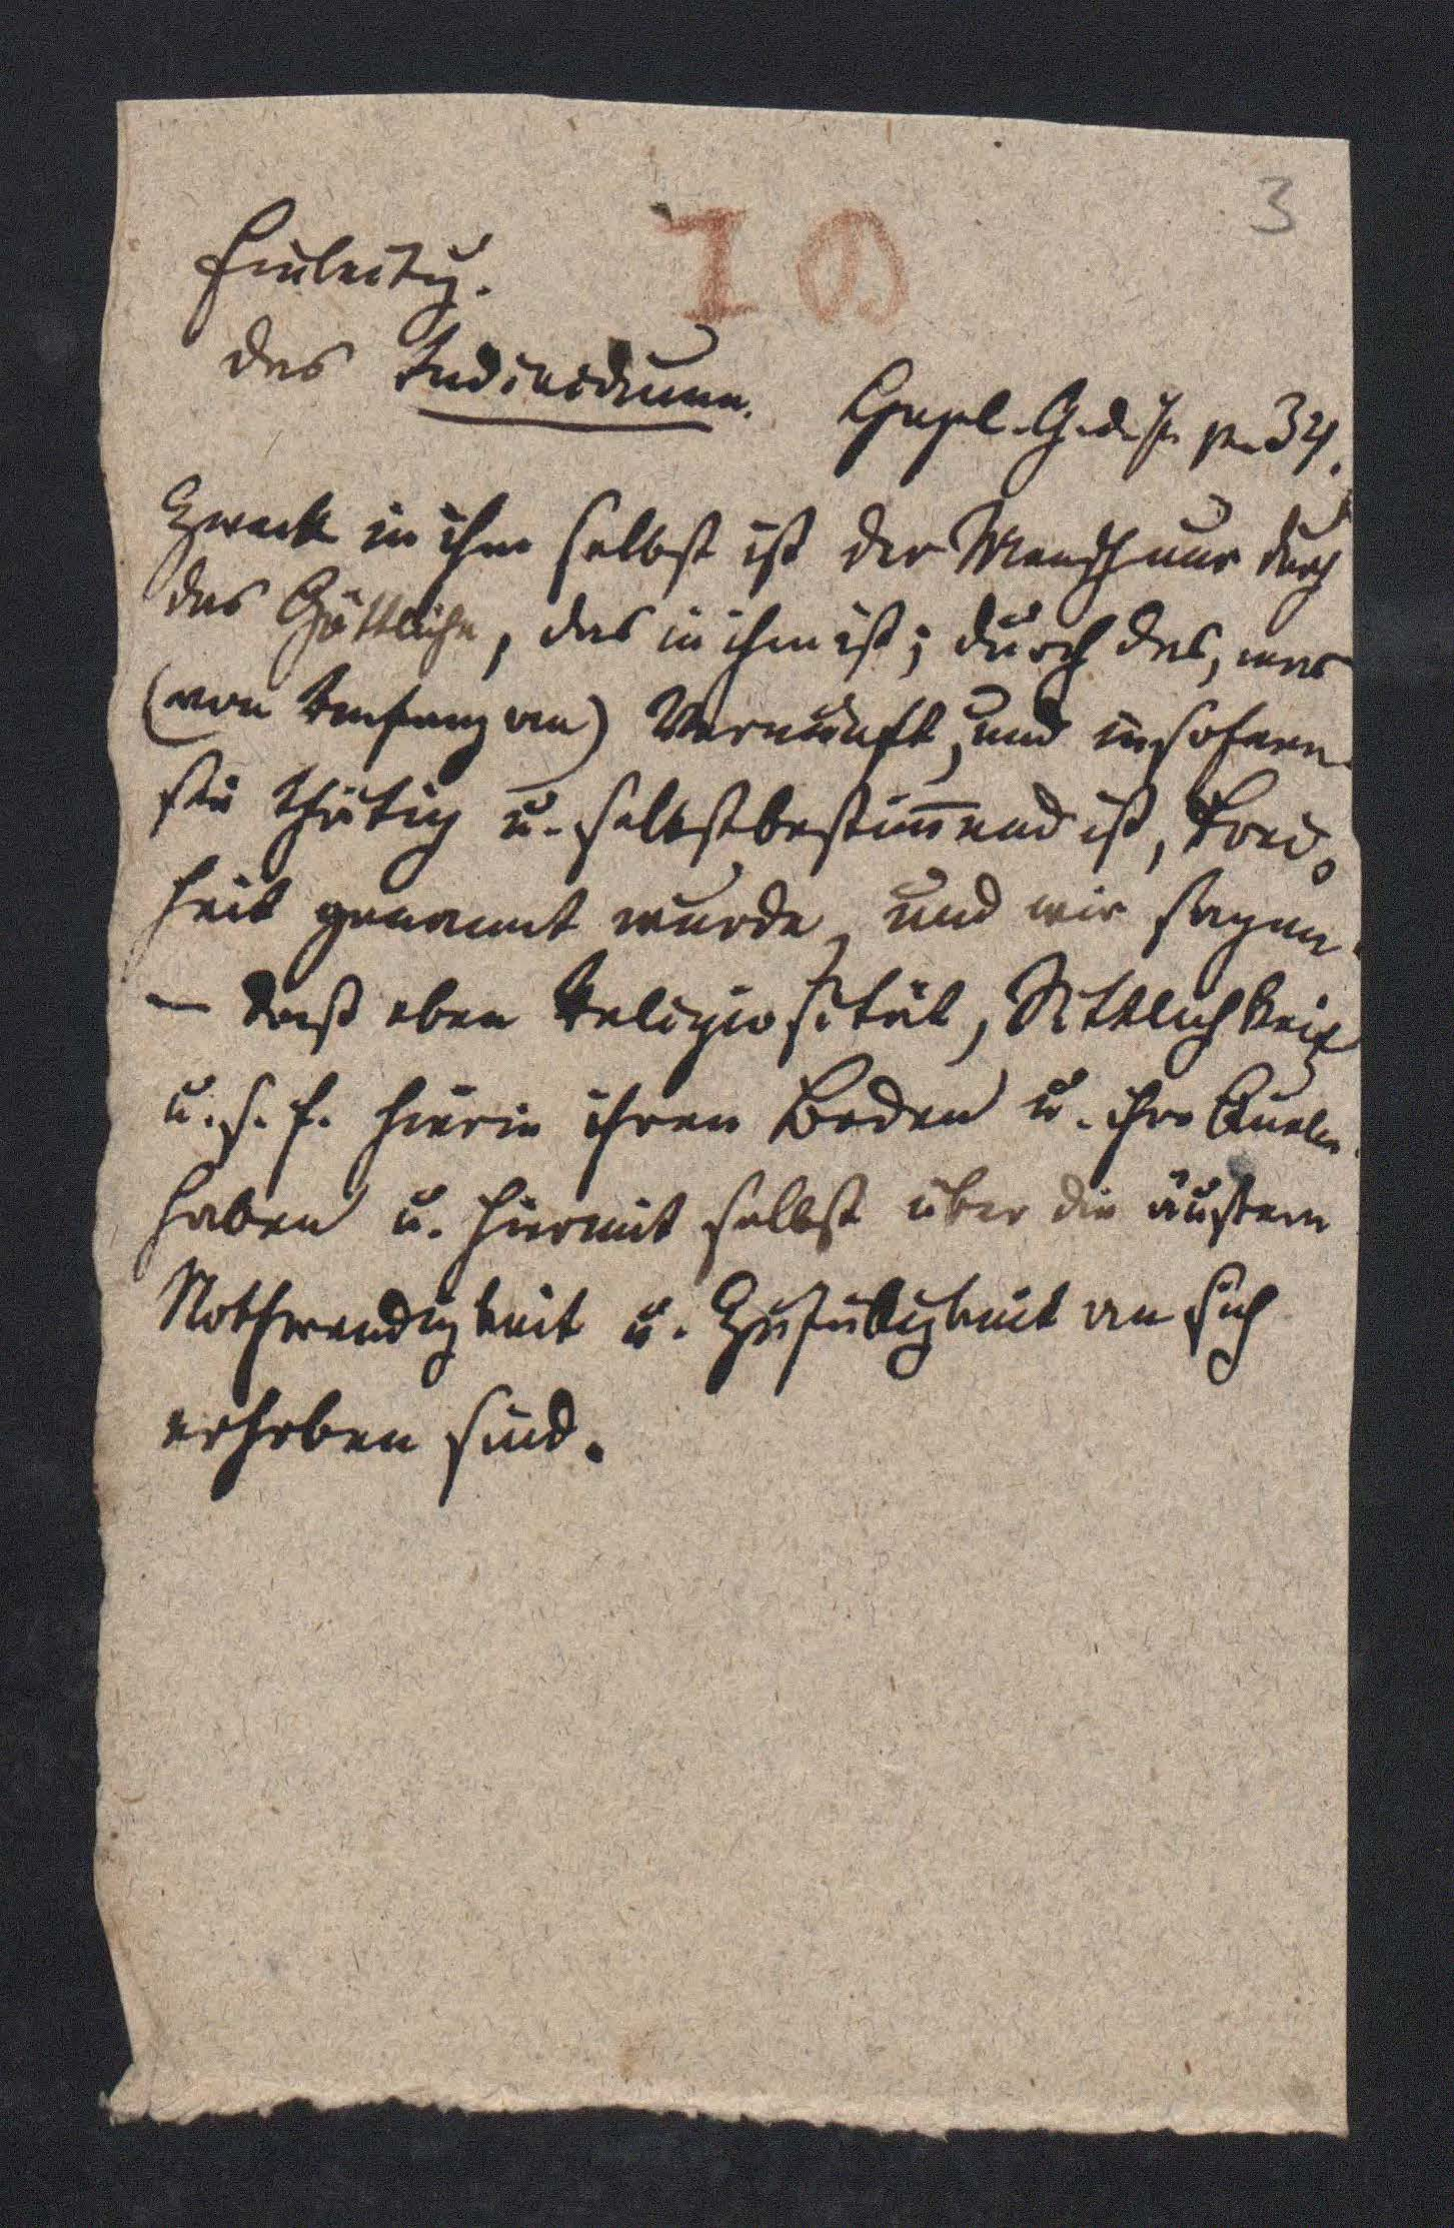 3
I
Einleitg.
das Individuum. Hegel. G. d. Ph. p. 34.
Zweck in ihm selbst ist der Mensch nur durch
das Göttliche, das in ihm ist; durch das, was
(von Anfang an) Vernunft, und insofern
sie thätig u. selbstbestim̅end ist, Frei-
heit genannt wurde, und wir sagen
– daß eben Religiosität, Sittlichkeit
u. s. f. hierin ihren Boden u. ihre Quelle
haben u. hiermit selbst über die äußere
Nothwendigkeit u. Zufälligkeit an sich
erhoben sind.